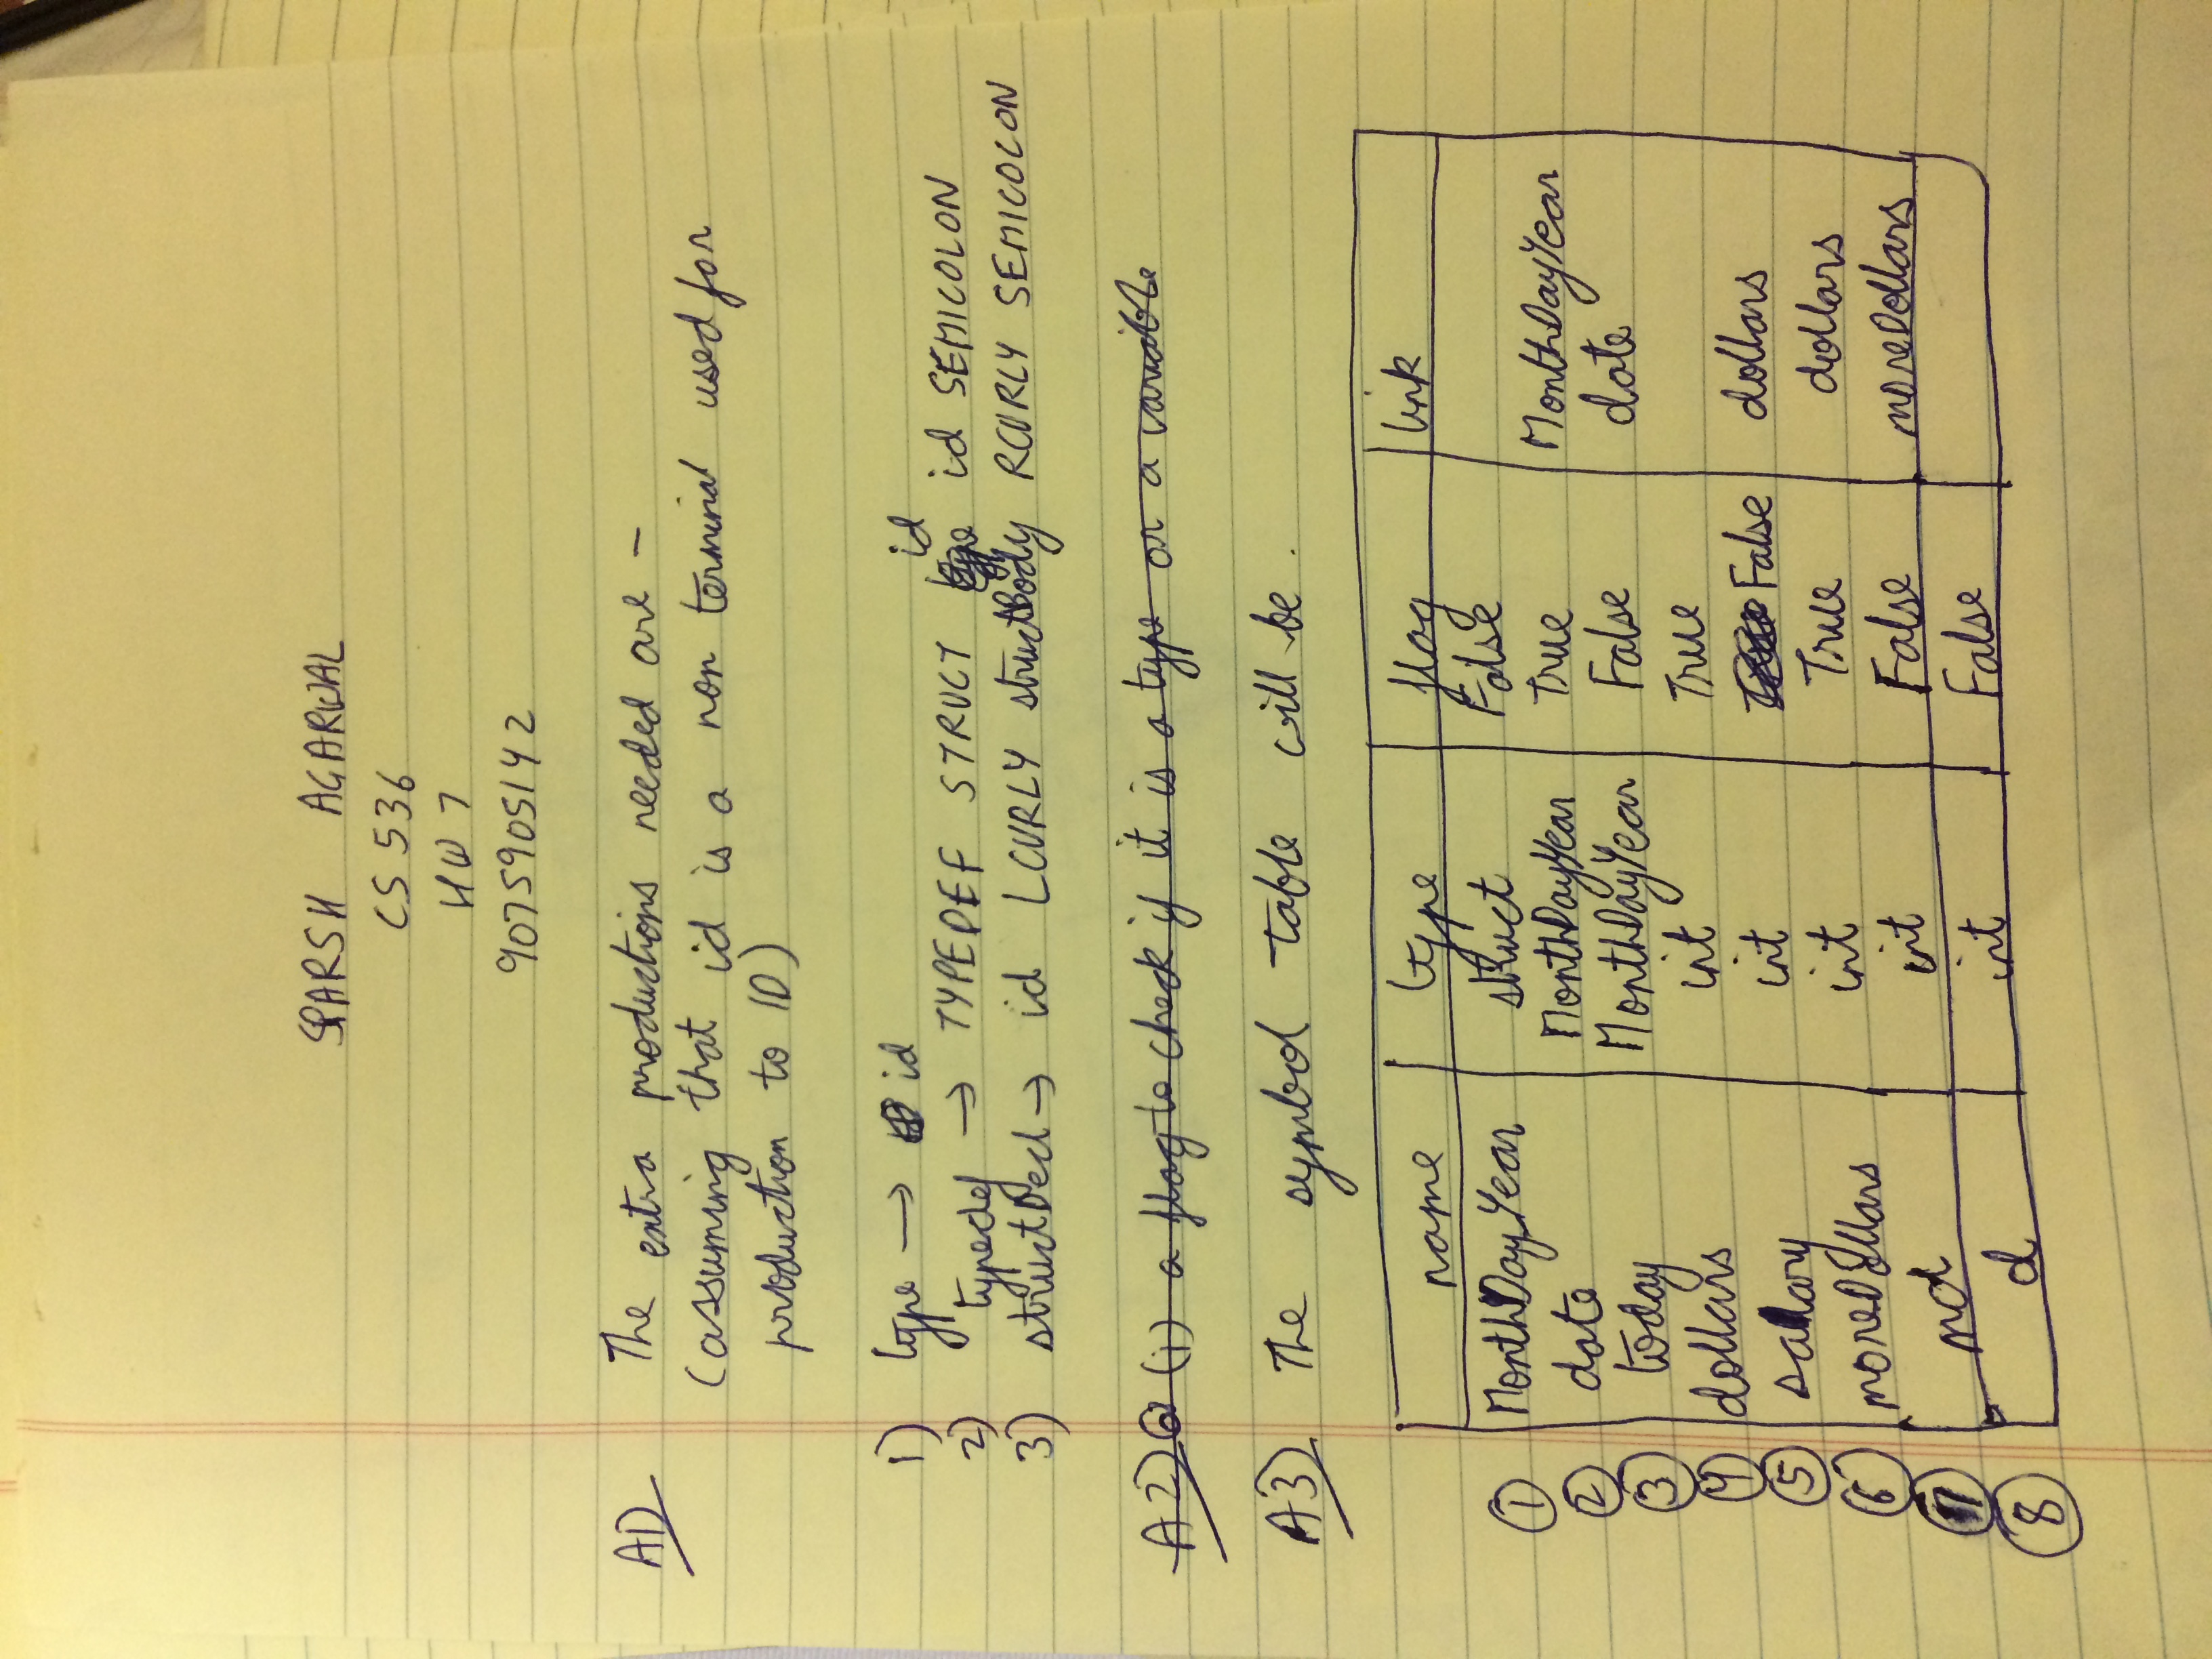 SPARSH AGARWAL
CS 536
HW 7
9075905142
A1) The extra productions needed are -
(assuming that id is a non terminal used for
production to ID)
1) type → id
2) typedef → TYPEDEF STRUCT id id SEMICOLON
3) structDecl → id LCURLY structBody RCURLY SEMICOLON
A2) (i) a flag to check if it is a type or a variable
A3) The symbol table will be.
name type flag link
① MonthDayYear struct False
② date MonthDayYear True MonthDayYear
③ today MonthDayYear False date
④ dollars int True
⑤ salary int False dollars
⑥ moreDollars int True dollars
⑦ md int False moreDollars
⑧ d int False